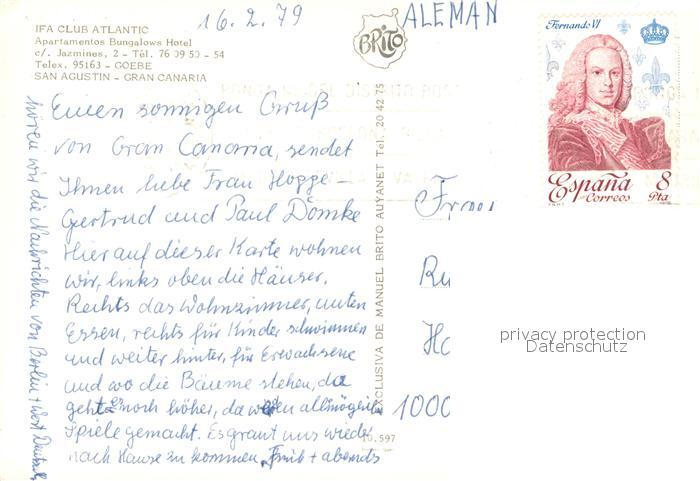 16. 2. 79
ALEMAN
IFA CLUB ATLANTIC
Apartamentos Bungalows Hotel
c/. Jazmines, 2 - Tél. 76 09 50 - 54
Telex. 95163 - GOEBE
SAN AGUSTIN - GRAN CANARIA
BRITO
Fernando VI
España 8
Correos Pta
Einen sonnigen Gruß
von Gran Canaria, sendet
Ihnen liebe Frau Hogge -
Gertrud und Paul Domke
Hier auf dieser Karte wohnen
wir, links oben die Häuser.
Rechts das Wohnzimmer, unten
Essen, rechts für Kinder schwimmen
und weiter hinter, für Erwachsene
und wo die Bäume stehen, da
geht es noch höher, da
Spiele gemacht. Es graut uns wieder
nach Hause zu kommen, Früh + abends
hören wir die Nachrichten von Berlin +
EXCLUSIVA DE MANUEL BRITO AUYANET Tel. 20 42 75
10.597
Ru
1000
privacy protection
Datenschutz